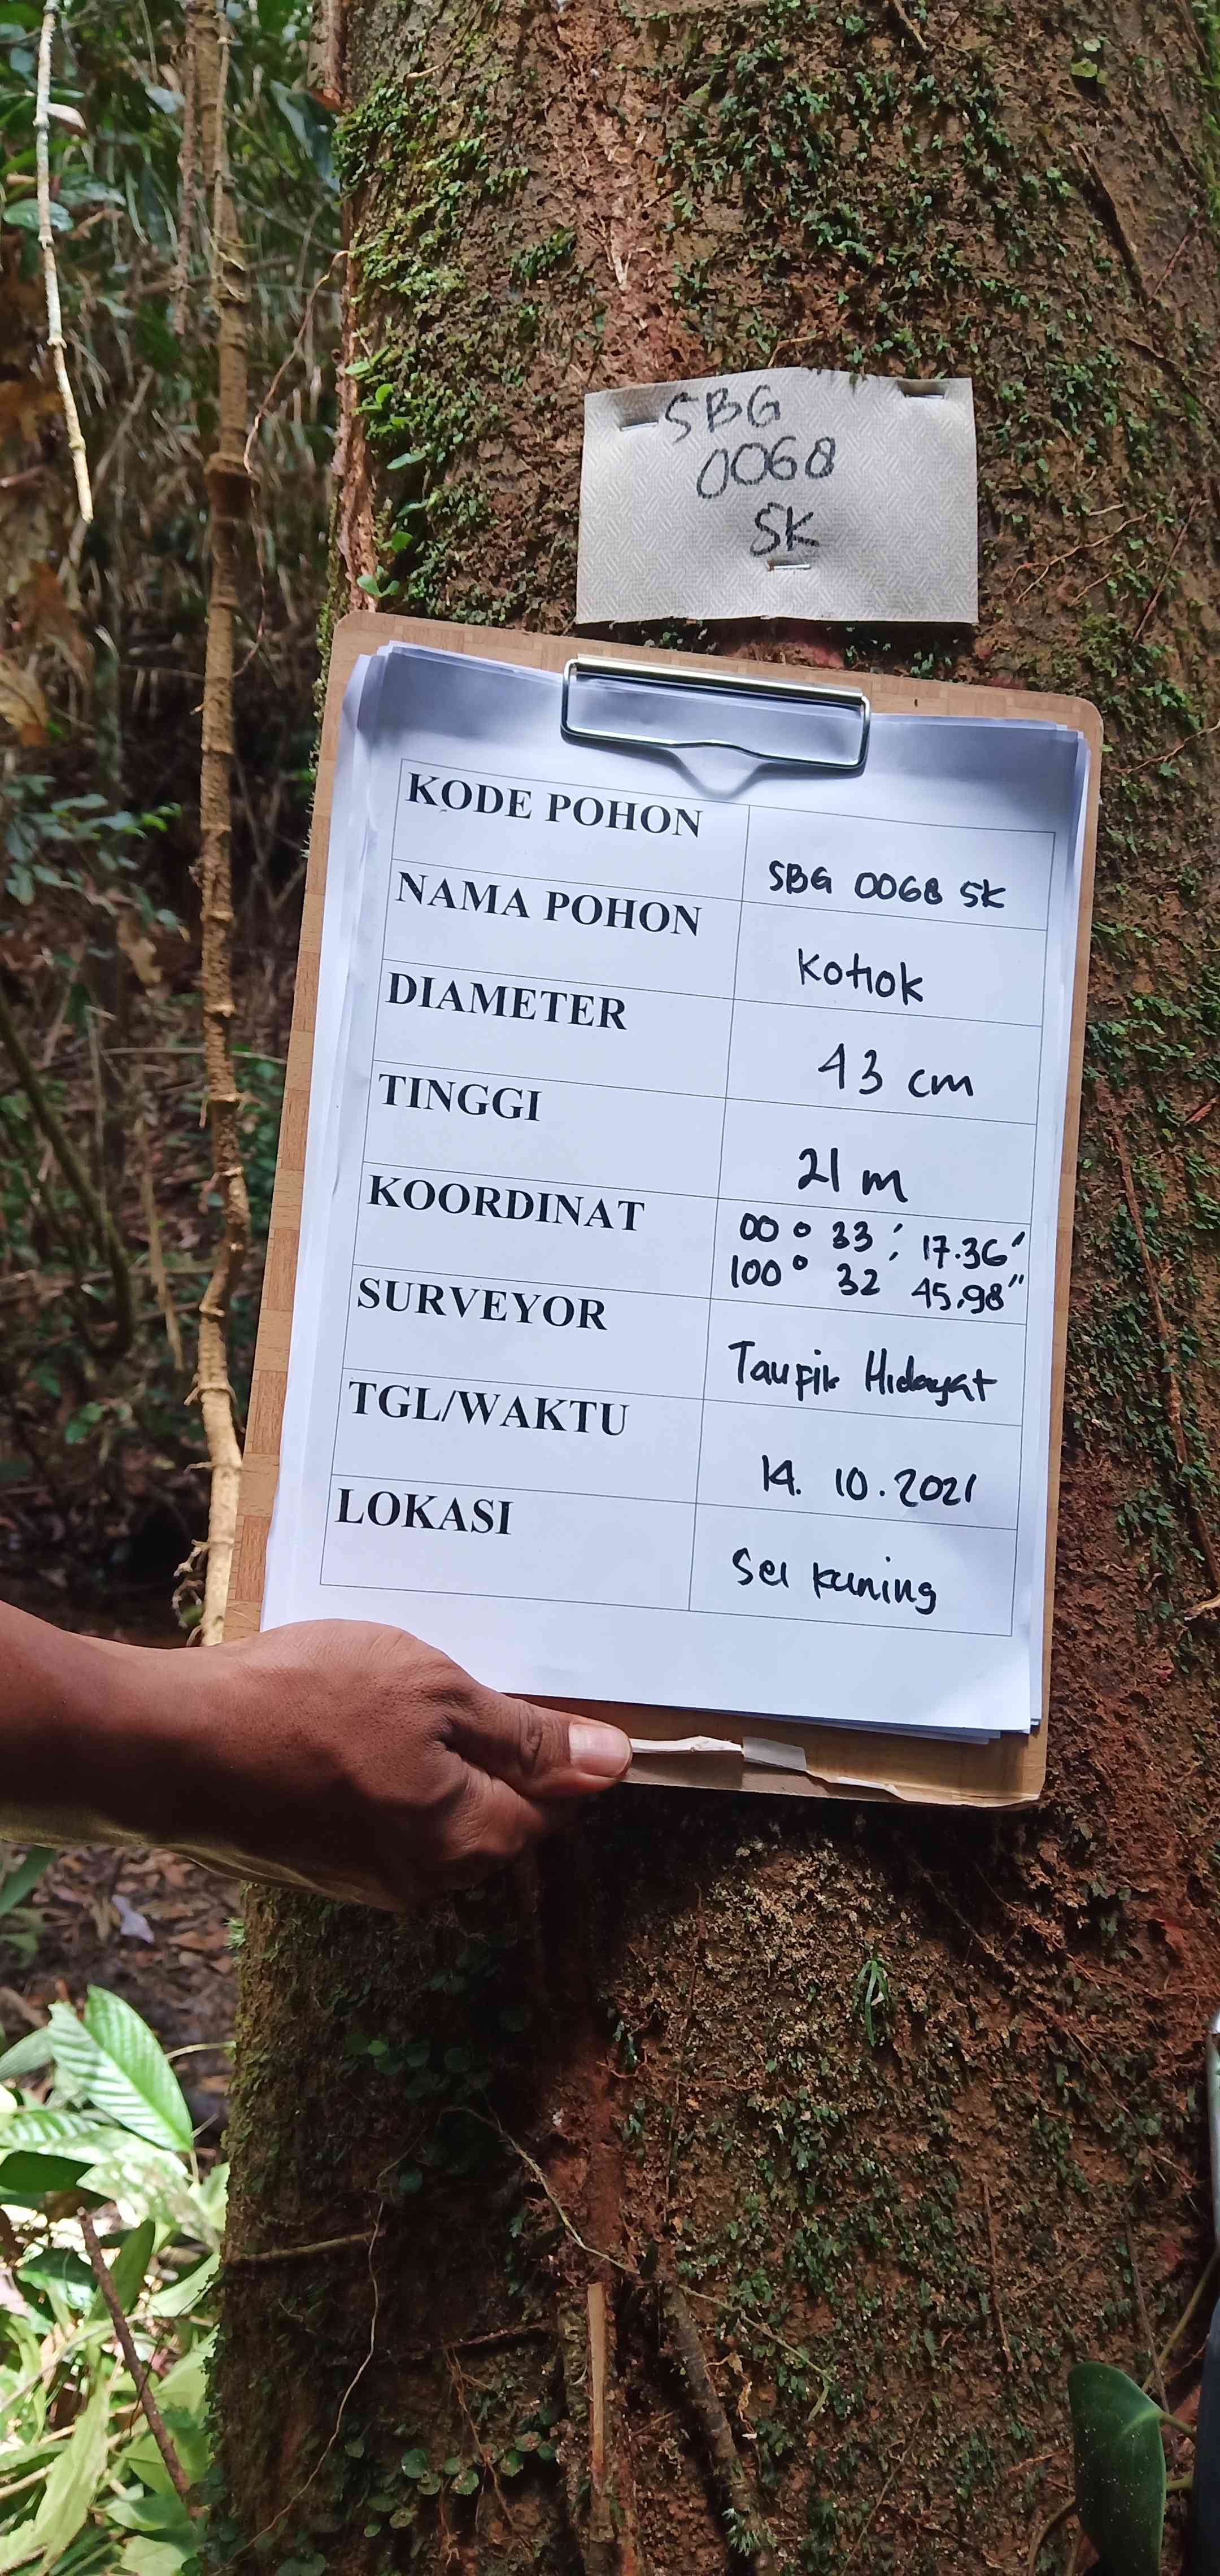 SBG
0068
SK
KODE POHON
SBG 0068 SK
NAMA POHON
Kotiok
DIAMETER
43 cm
TINGGI
21 m
KOORDINAT
00 ° 33 ; 17.36"
100° 32 45,98"
SURVEYOR
Taupik Hidayat
TGL/WAKTU
14. 10.2021
LOKASI
Sei kuning